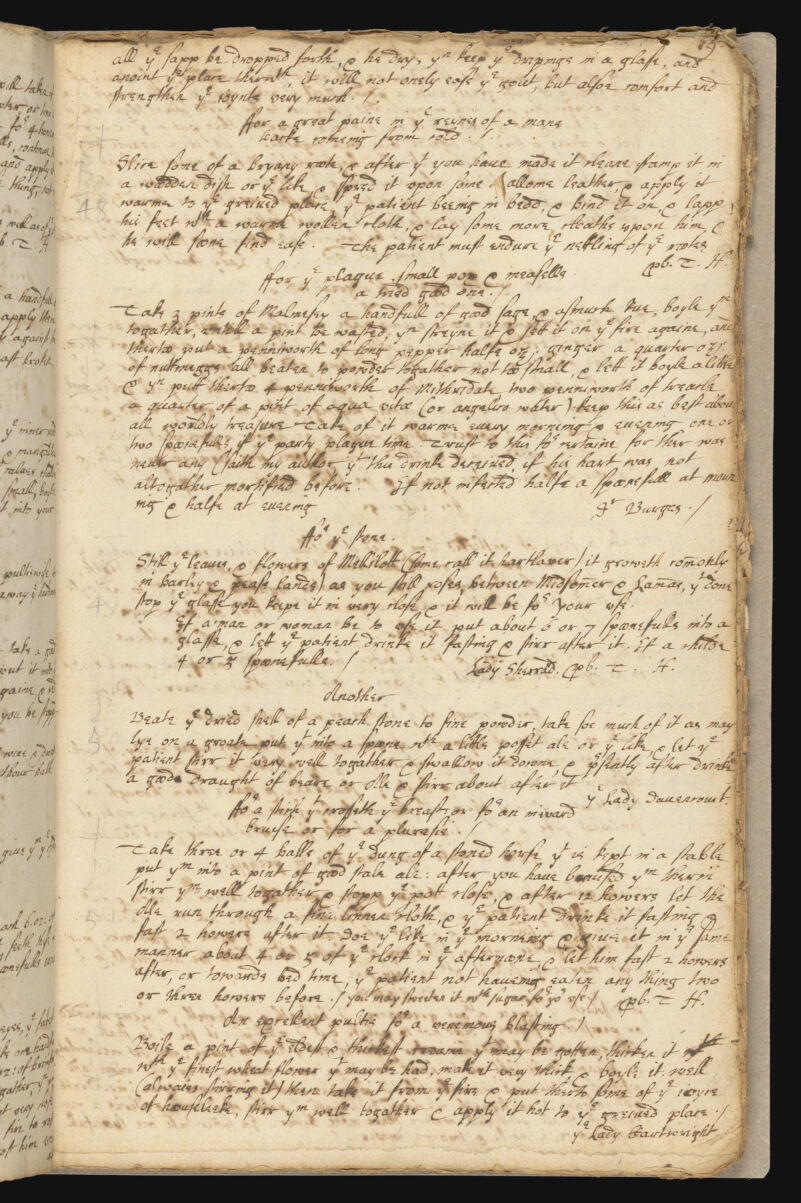 79
all yͤ sapp be dropped forth, & he dry, yⁿ keep yͤ dripings in a glasse, and
anoint yͤ place therwᵗʰ, it will not onely ease yͤ gout, but alsoe comfort and
strengthen yͤ joynts very much ./.
ffor a great paine in yͤ reynes of a mans
backe coming from cold ./
Slice some of a bryany roote, & after yᵗ you have made it cleane stamp it in
a wodden dish or yͤ like, & spred it upon some allome leather, & apply it
warme to yͤ greived place, yͤ patient beeing in bedd, & bind it on, & lapp
his feet wᵗʰ a warme wollen cloth, & lay some more cloaths upon him, &
he will soone find ease. The patient must endure yͤ netling of yͤ rootes
pb. T. H.
ffor yͤ plague small pox & measells
a tried good one ./
Take 3 pints of Malmesey a handfull of god sage, & asmuch Rue, boyle yᵐ
togather, untill a pint be wasted, yⁿ streyne it & sett it on yͤ fire againe, and
therto put a penniworth of long pepper halfe oz: ginger a quarter oz:
of nuttmeggs all beaten to powder togather not too small, & lett it boyle a little
& yⁿ putt therto 4 penniworth of Mithridate two penniworth of treacle
a quarter of a pint of aqua vitæ (or angelico water) keep this as best above
all worldly treasure Take of it warme every morning & evening one or
two spoonefulls if yͤ party plague time Trust to this foʳ certaine for ther was
never any (saith my author yᵗ thus drinke deceived, if his hart was not
altogather mortified before. If not infected halfe a spoonefull at morn
ing & halfe at evening Dʳ Burges ./
ffoʳ yͤ stone.
Still yͤ leaves, & flowers of Mellilott (some call it hartclaver) it groweth comonly
in barley & pease lands) as you still roses, between Midsomer & Lamas, yᵗ done
stop yͤ glasse you keepe it in very close, & it will be foʳ your use.
If a man or woman be to use it put about 6 or 7 spoonefulls into a
glasse, & lett yͤ patient drinke it fasting & stirr after it. If a childe
4 or 5 spoonefulls. / Lady Sherrad. pb. T. H.
Another
Beate yͤ dried shell of a peach stone to fine powder, take soe much of it as may
lye on a groate put yᵗ into a spoone wᵗʰ a little posset ale or yͤ like, & let yͤ
patient stirr it very well togather & swallow it downe, & pʳsently after drinke
a good draught of beare or Ale & stirr about after it yͤ Lady Davencourt.
ffoʳ a stitch yᵗ crosseth yͤ breast, or foʳ an inward
bruise or for a pluresie ./
Take three or 4 balls of yͤ dung of a stoned horse yᵗ is kept in a stable
put yᵐ into a pint of good stale ale: after you have bruised yᵐ therin
stirr yᵐ well togather & stopp yͤ pot close, & after 12 howers let the
Ale run through a fine linnen cloth, & yͤ patient drinke it fasting &
fast 2 howers after it. Doe yͤ like in yͤ morneing & give it in yͤ same
manner about 4 or 5 of yͤ clock in yͤ afternoone, & let him fast 2 howers
after, or towards bed time, yͤ patient not haveing eaten any thing two
or three howers before ./ you may sweeten it wᵗʰ sugar foʳ yoʳ use / pb. T. H.
An excellent pultis foʳ a venemous blasting /
Boile a pint of yͤ best & thickest creame yᵗ may be gotten, thicken it
wᵗʰ yͤ finest wheat flower yᵗ may be had, make it very thick & boyle it well
(alwaies stirring it) then take it from yͤ fire & put therto some of yͤ juyce
of houseleeke, stirr yᵐ well togather & apply it hot to yͤ greived place ./
yͤ Lady Cartwright